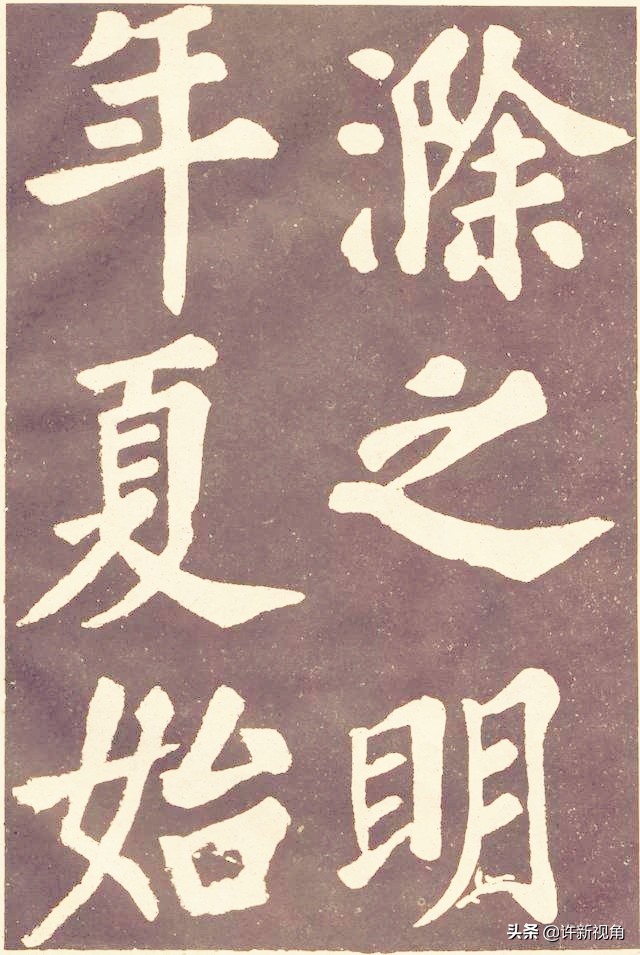 滁之明
年夏始
头条 @许新视角